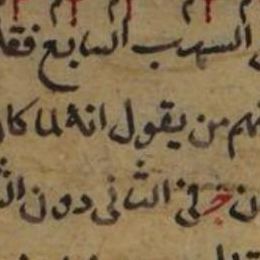 السهب السابع فقا
نهم من يقول انه لما كا
ن في الثاني دون ال